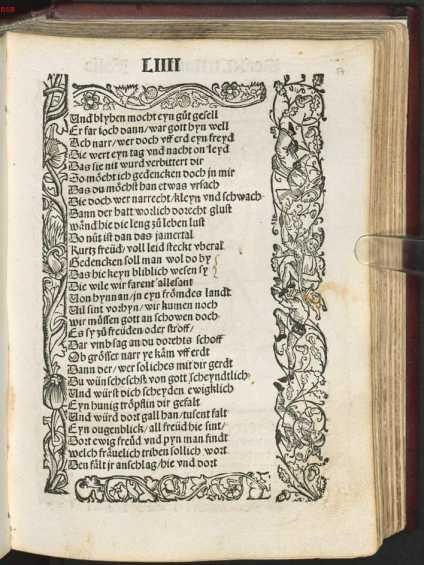 LIIII
Und blyben mocht eyn gůt gesell
Er far ioch dann / war gott hyn well
Ach narr / wer doch vff erd eyn freyd
Die wert eyn tag vnd nacht on leyd
Das sie nit wurd verbittert dir
So mőcht ich gedencken doch jn mir
Das du mőchst han etwas vrsach
Die doch wer narrecht / kleyn vnd schwach
Dann der hatt worlich dorecht glust
wånd hie die leng zů leben lust
Do nüt ist dan das jamertal
Kurtz freüd / voll leid steckt vberal
Gedencken soll man wol do by
Das hie keyn bliblich wesen sy
Die wile wir farent allesant
Von hynnan / jn eyn frőmdes landt
Vil sint vorhyn / wir kumen noch
wir můssen gott an schowen doch
Es sy zů freüden oder stroff /
Dar vmb sag an du dorehts schoff
Ob grősser narr ye kåm vff erdt
Dann der / wer soliches mit dir gerdt
Du wünschest von gott scheyndtlich
Und würst dich scheyden ewigklich
Eyn hunig trőpflin dir gefalt
Und würd dort gall han / tusent falt
Eyn ougenblick / all freüd hie sint /
Dort ewig freüd vnd pyn man findt
welch fråuelich triben sollich wort
Den fålt jr anschlag / hie vnd dort